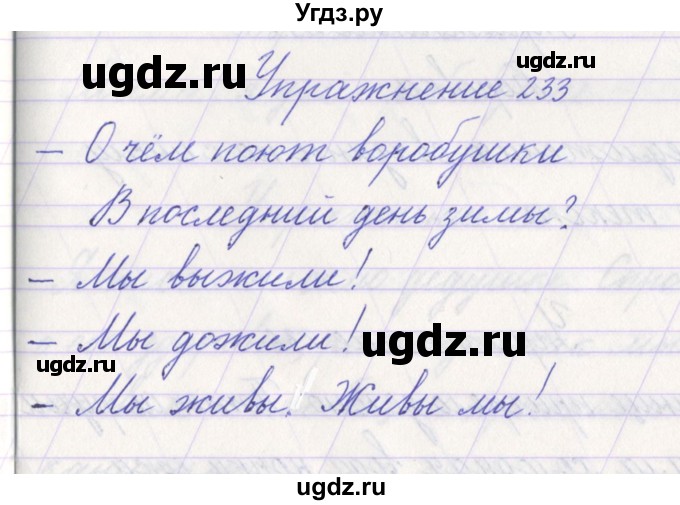 Угдз.ру
ugdz.ru
ugdz.ru
Упражнение 233
– О чём поют воробушки
ugdz.ru
В последний день зимы?
– Мы выжили!
– Мы дожили!
ugdz.ru
ugdz.ru
– Мы живы. Живы мы!
ugdz.ru
ugdz.ru